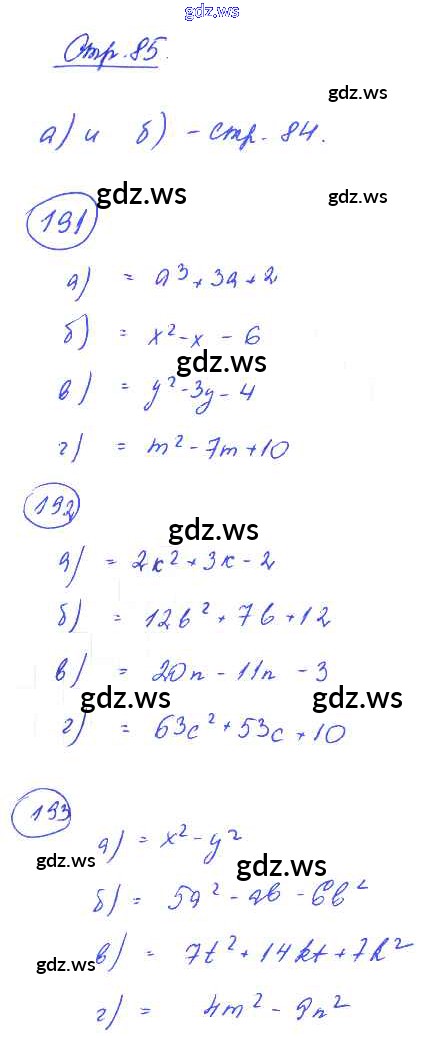 gdz.ws
Стр. 85.
gdz.ws
а) и б) - стр. 84.
gdz.ws
gdz.ws
191
а) = a³ + 3a + 2
б) = x² - x - 6
gdz.ws
в) = y² - 3y - 4
г) = m² - 7m + 10
192
gdz.ws
а) = 2k² + 3k - 2
б) = 12b² + 7b + 12
в) = 20n - 11n - 3
gdz.ws gdz.ws
г) = 63c² + 53c + 10
193
а) = x² - y²
gdz.ws gdz.ws
б) = 5a² - ab - 6b²
в) = 7t² + 14kt + 7k²
gdz.ws
г) = 4m² - 9n²